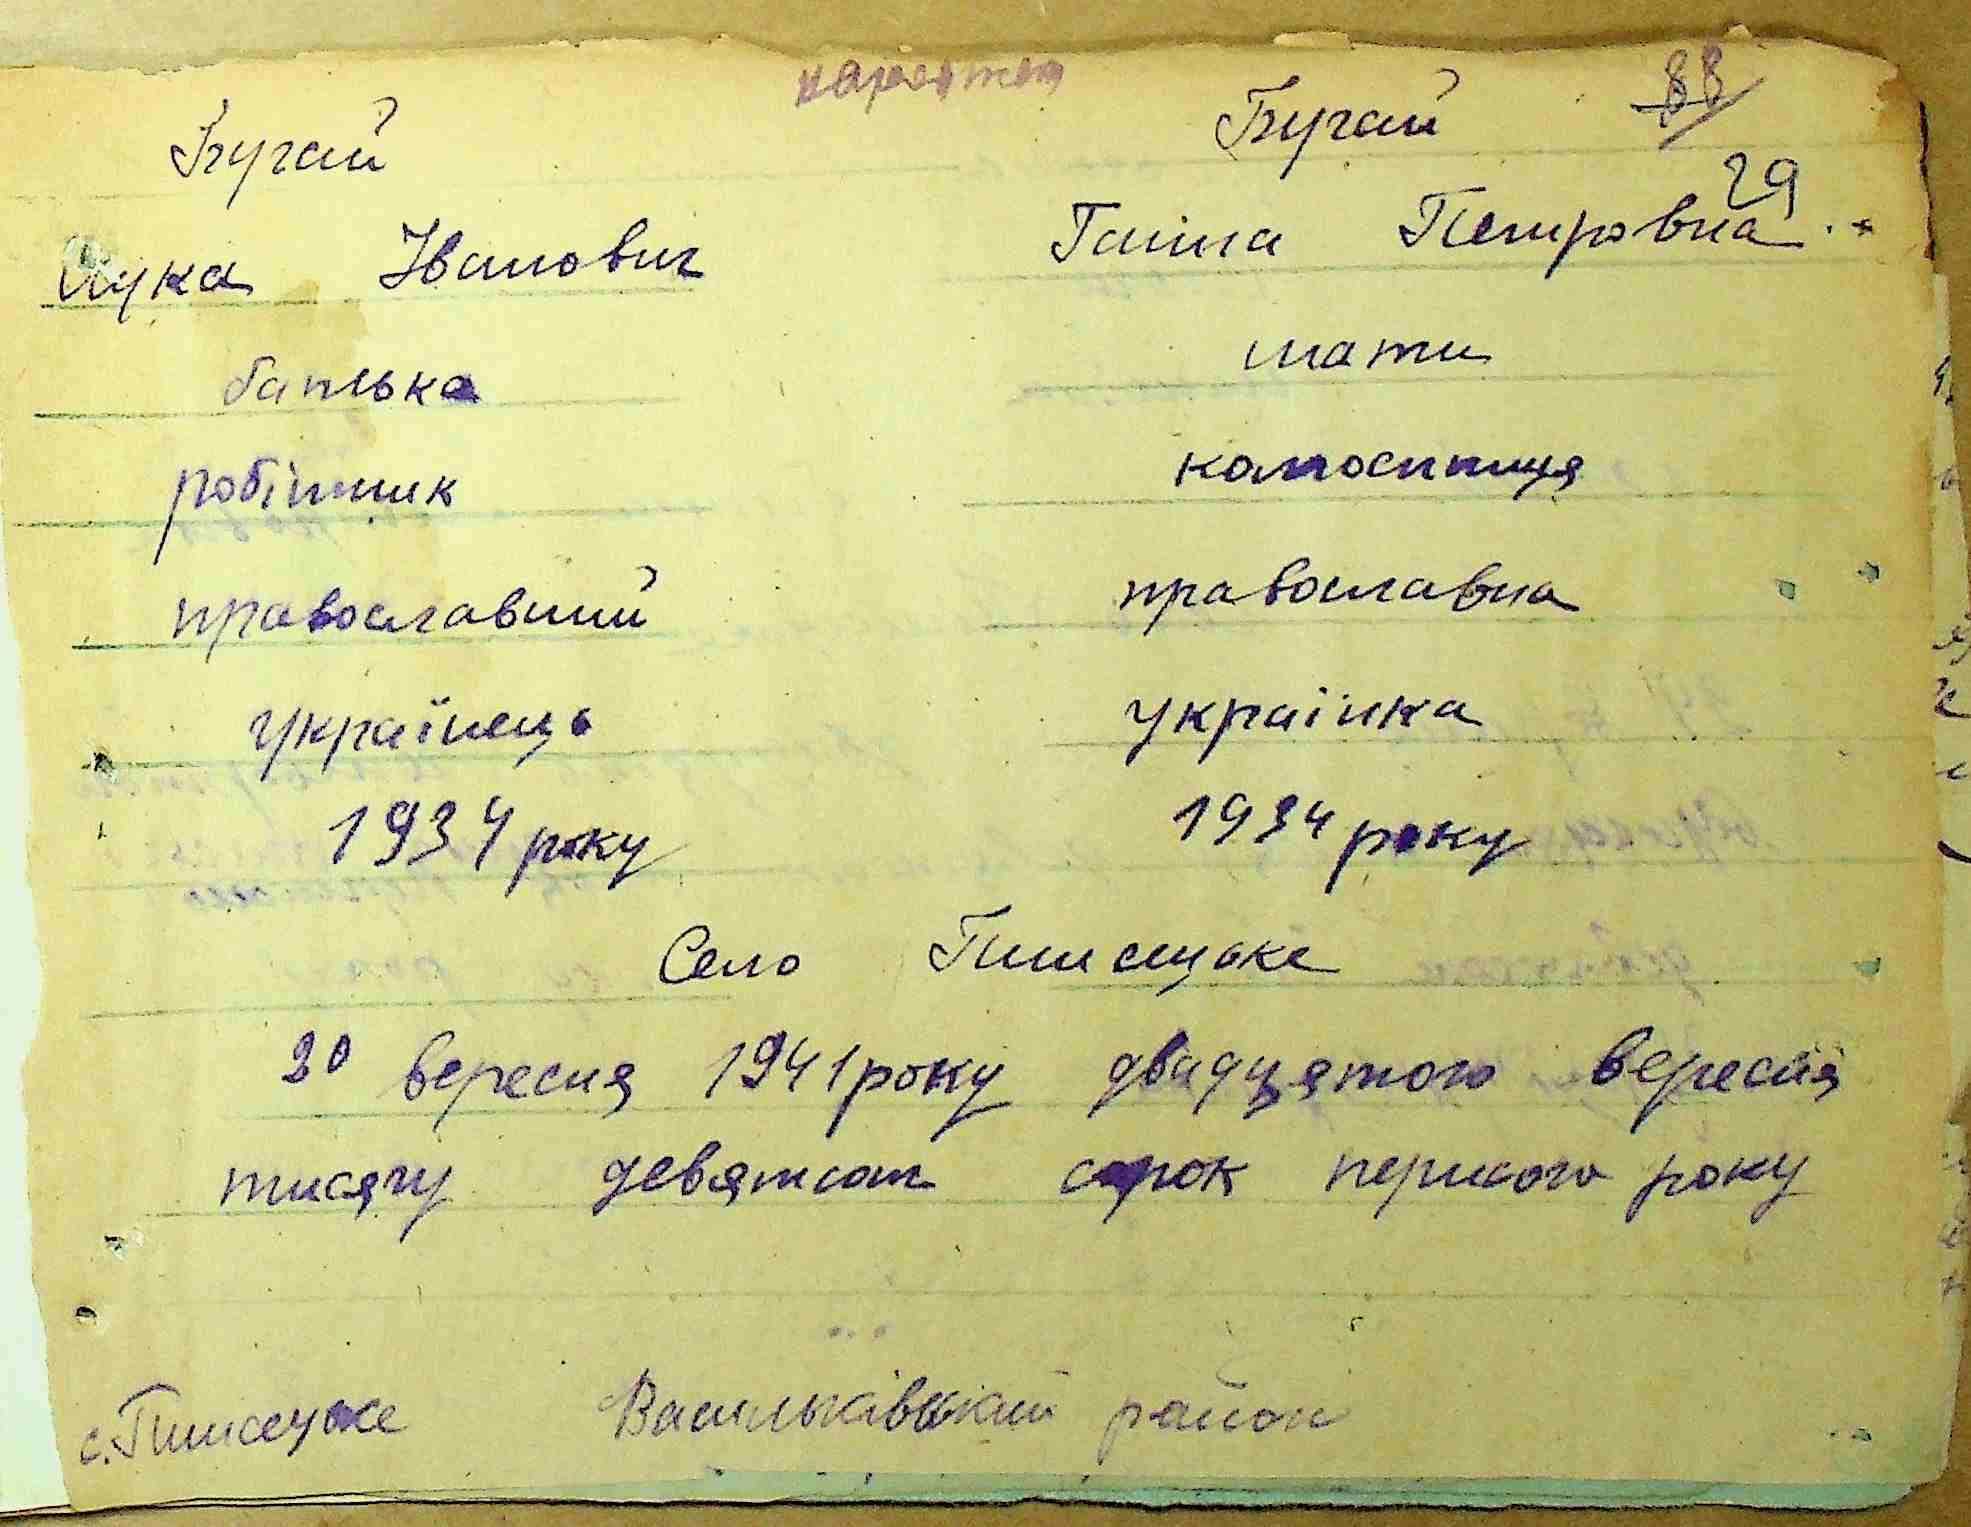 Бугай Бугай 88
29
Лука Іванович Ганна Петровна
батько мати
робітник
православний православна
українець українка
1934 року 1934 року
Село Плисецьке
20 вересня 1941 року двадцятого вересня
тисячу девятсот сорок першого року
с. Плисецьке Васильківський район